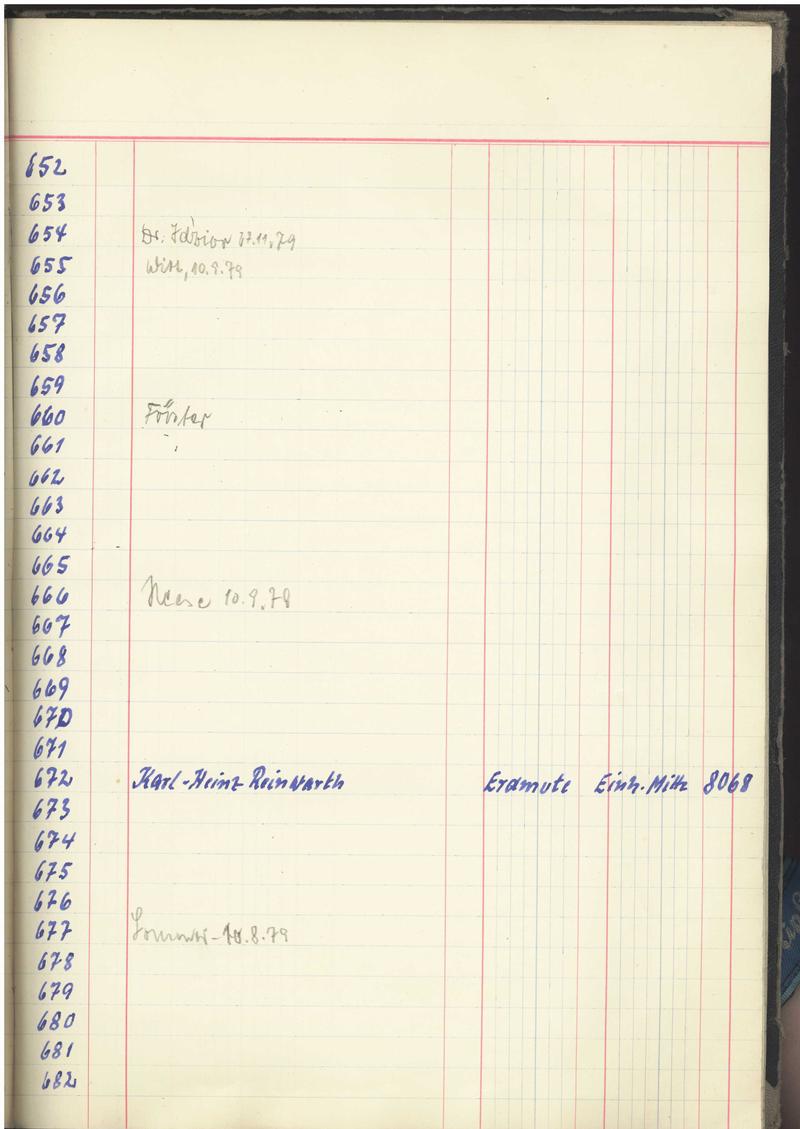 652
653
654 Dr. 27.11.79
655 Witt, 10.9.79
656
657
658
659
660 Förster
661
662
663
664
665
666 Neese 10.9.78
667
668
669
670
671
672 Karl-Heinz Reinwarth Erdmute Einh. Mittz 8068
673
674
675
676
677 10.8.79
678
679
680
681
682